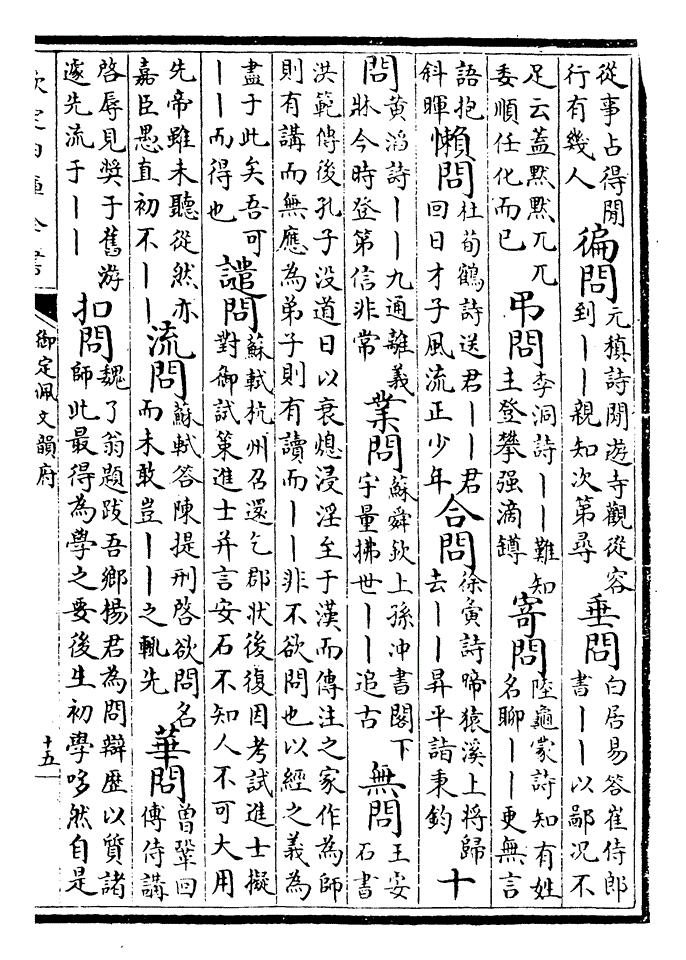 從事占得閒
行有幾人
徧問
元稹詩閒遊寺觀從容
到丨丨親知次第尋
垂問
白居易答崔侍郎
書丨丨以鄙况不
足云蓋默默兀兀
委順任化而已
弔問
李洞詩丨丨難知
主登攀强滴罇
寄問
陸龜蒙詩知有姓
名聊丨丨更無言
語抱
斜暉
懶問
杜荀鶴詩送君丨丨君
回日才子風流正少年
合問
徐寅詩啼猿溪上將歸
去丨丨昇平詣秉鈞
十
問
黄滔詩丨丨九通離義
牀今時登第信非常
業問
蘇舜欽上孫冲書閣下
宇量拂世丨丨追古
無問
王安
石書
洪範傳後孔子没道日以衰熄浸淫至于漢而傳注之家作為師
則有講而無應為弟子則有讀而丨丨非不欲問也以經之義為
盡于此矣吾可
丨丨而得也
譴問
蘇軾杭州召還乞郡狀後復因考試進士擬
對御試策進士并言安石不知人不可大用
先帝雖未聽從然亦
嘉臣愚直初不丨丨
流問
蘇軾答陳提刑啓欲問名
而未敢豈丨丨之輒先
華問
曾鞏回
傅侍講
啓辱見奬于舊游
遂先流于丨丨
扣問
魏了翁題跋吾鄉楊君為問辯歴以質諸
師此最得為學之要後生初學哆然自是
御定佩文韻府
十五